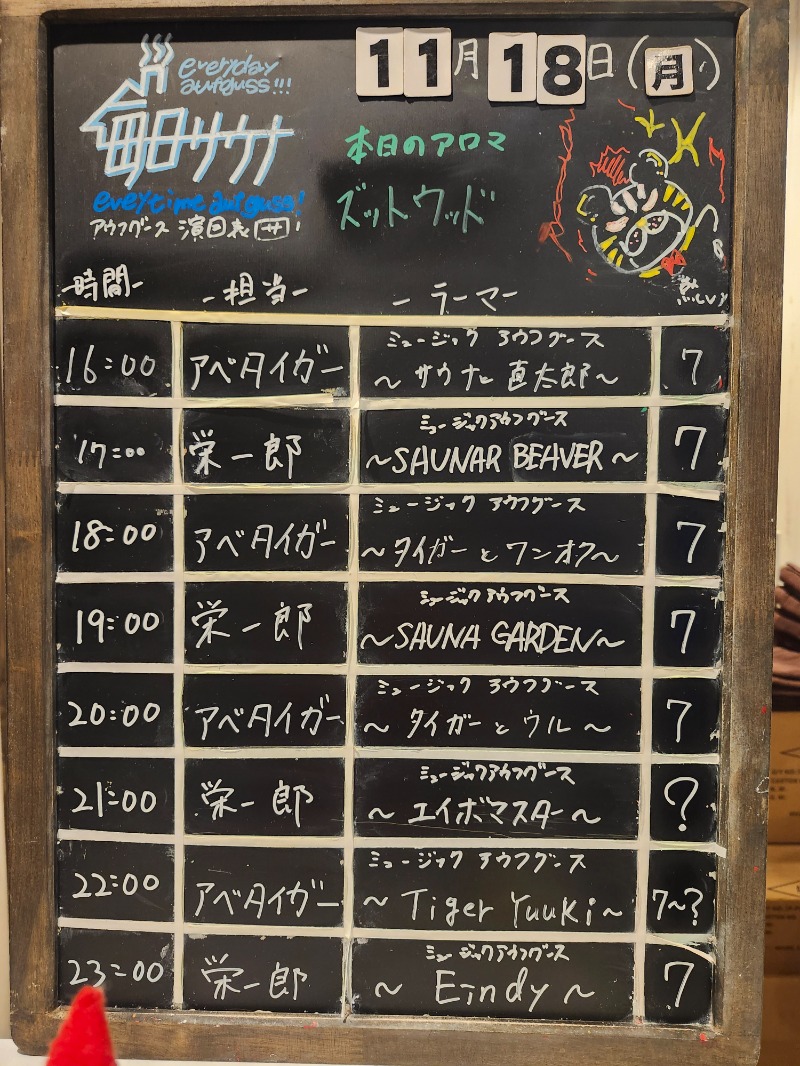 everyday
aufguss!!!
毎日サウナ
everytime aufguss!
アウフグース 演目表 サ!
11月18日(月)
本日のアロマ
ズットウッド
-時間-
-担当-
-テーマ-
熱い
16:00 アベタイガー ミュージック アウフグース 7
~サウナと 直太郎~
17:00 栄一郎 ミュージックアウフグース 7
~SAUNAR BEAVER~
18:00 アベタイガー ミュージック アウフグース 7
~タイガーとワンオク~
19:00 栄一郎 ミュージックアウフグース 7
~SAUNA GARDEN~
20:00 アベタイガー ミュージック アウフグース 7
~タイガーとウル~
21:00 栄一郎 ミュージックアウフグース ?
~エイボマスター~
22:00 アベタイガー ミュージック アウフグース 7~?
~Tiger Yuuki~
23:00 栄一郎 ミュージックアウフグース 7
~Eindy~